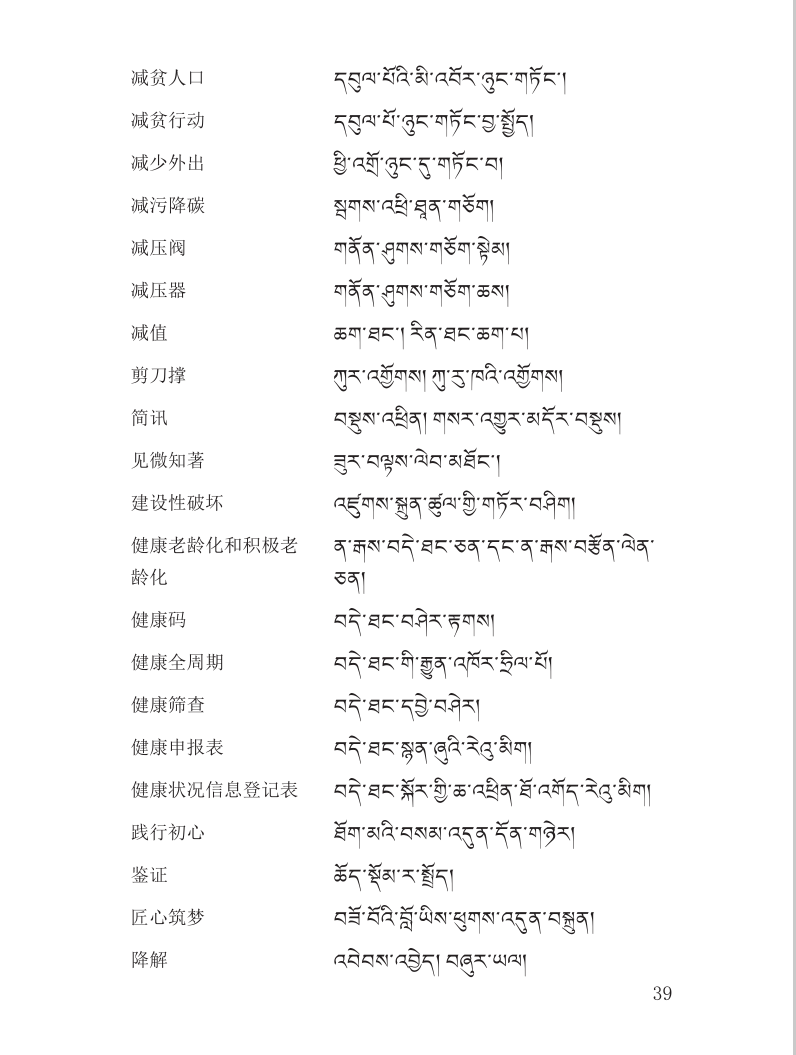 减贫人口 དབུལ་པོའི་མི་འབོར་ཉུང་གཏོང་།
减贫行动 དབུལ་པོ་ཉུང་གཏོང་བྱ་སྤྱོད།
减少外出 ཕྱི་འགྲོ་ཉུང་དུ་གཏོང་བ།
减污降碳 སྦགས་འཕྲི་ཐན་གཅོག།
减压阀 གནོན་ཤུགས་གཅོག་སྟེམ།
减压器 གནོན་ཤུགས་གཅོག་ཆས།
减值 ཆག་ཐང་། རིན་ཐང་ཆག་པ།
剪刀撑 ཀུར་འགྱོགས། ཀུ་རུ་ཁའི་འགྱོགས།
简讯 བསྡུས་འཕྲིན། གསར་འགྱུར་མདོར་བསྡུས།
见微知著 ཟུར་བལྟས་ལེབ་མཐོང་།
建设性破坏 འཛུགས་སྐྲུན་ཚུལ་གྱི་གཏོར་བཤིག།
健康老龄化和积极老 ན་རྒས་བདེ་ཐང་ཅན་དང་ན་རྒས་བརྩོན་ལེན་
龄化 ཅན།
健康码 བདེ་ཐང་བཤེར་རྟགས།
健康全周期 བདེ་ཐང་གི་རྒྱུན་འཁོར་ཧྲིལ་པོ།
健康筛查 བདེ་ཐང་དབྱེ་བཤེར།
健康申报表 བདེ་ཐང་སྙན་ཞུའི་རེའུ་མིག།
健康状况信息登记表 བདེ་ཐང་སྐོར་གྱི་ཆ་འཕྲིན་ཐོ་འགོད་རེའུ་མིག།
践行初心 ཐོག་མའི་བསམ་འདུན་དོན་གཉེར།
鉴证 ཆོད་སྡོམ་ར་སྤྲོད།
匠心筑梦 བཟོ་བོའི་བློ་ཡིས་ཕུགས་འདུན་བསྐྲུན།
降解 འབེབས་འབྱེད། བཞུར་ཡལ།
39